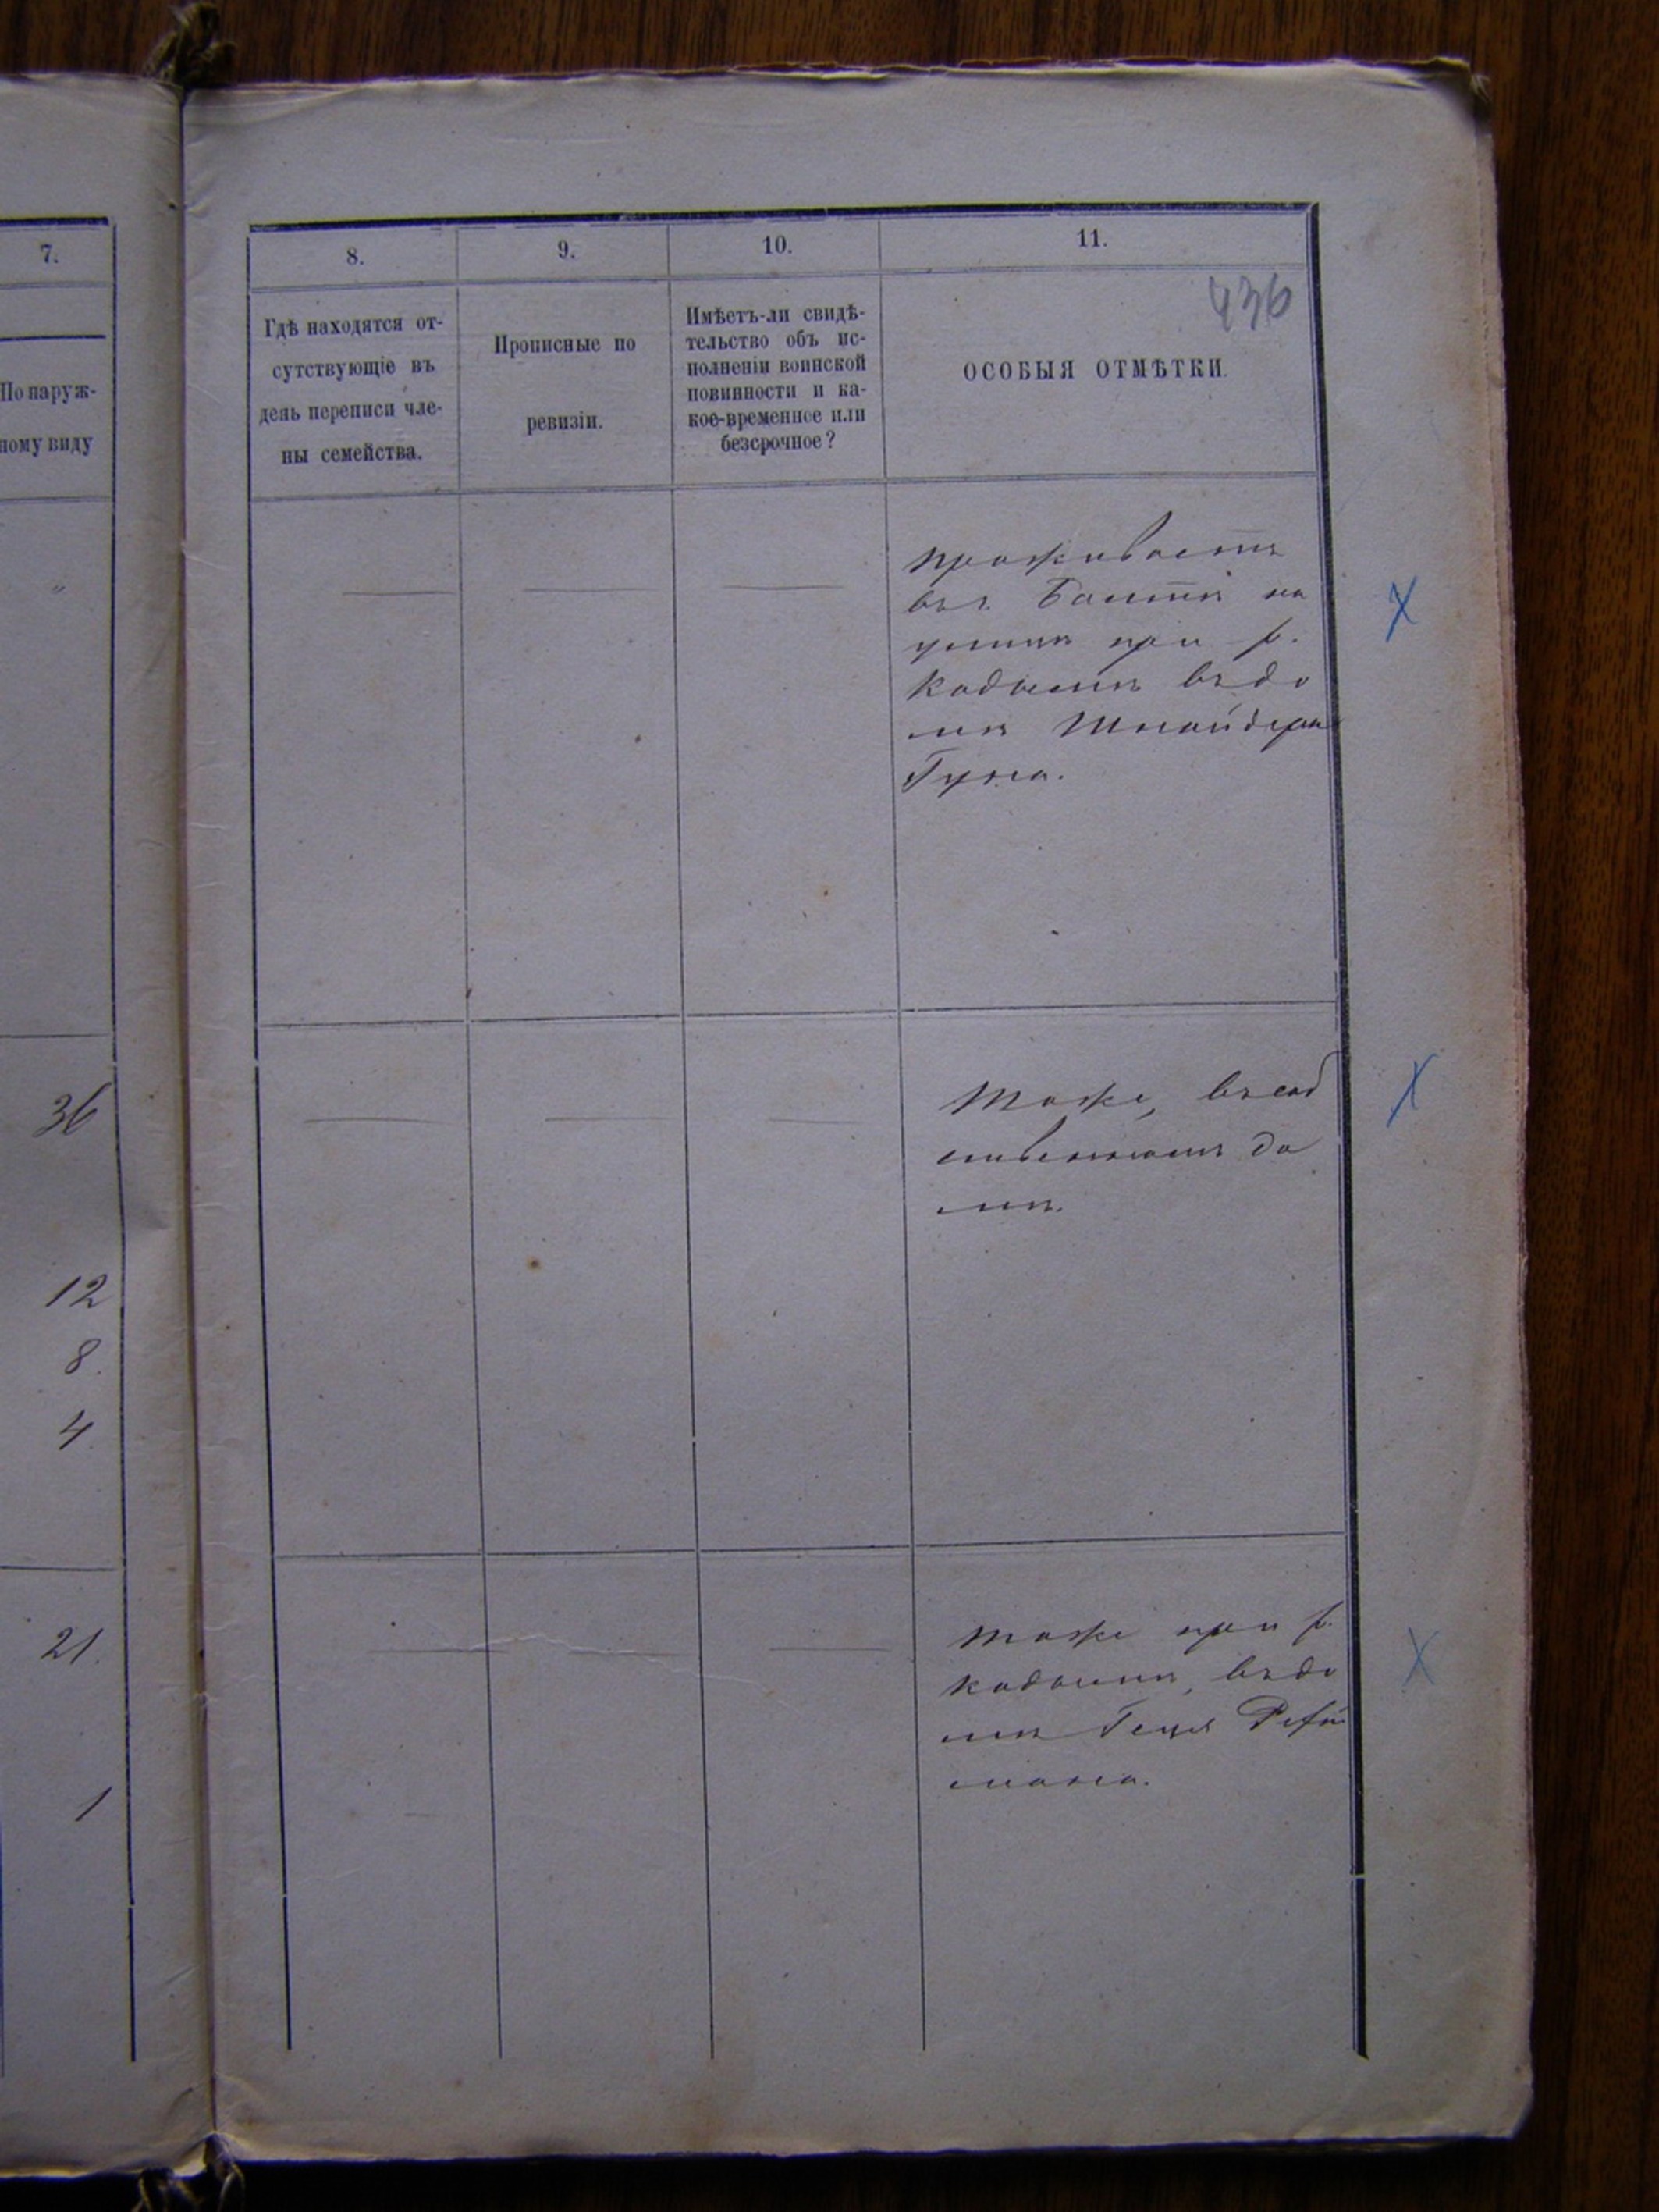 7.
По наруж-
ному виду
36
12
8.
4.
21.
1
8.
9.
10.
11.
436
Гдѣ находятся от-
сутствующіе въ
день переписи чле-
ны семейства.
Прописные по
ревизіи.
Имѣетъ-ли свидѣ-
тельство объ ис-
полненіи воинской
повинности и ка-
кое-временное или
безсрочное?
ОСОБЫЯ ОТМѢТКИ.
проживаетъ
въ г. Балтѣ на
улицѣ при р.
Кодымѣ въ до
мѣ Шнайдера
Гуна.
X
Тоже, въ соб
ственномъ до
мѣ.
X
Тоже при р.
Кодымѣ, въ до
мѣ
мана.
X